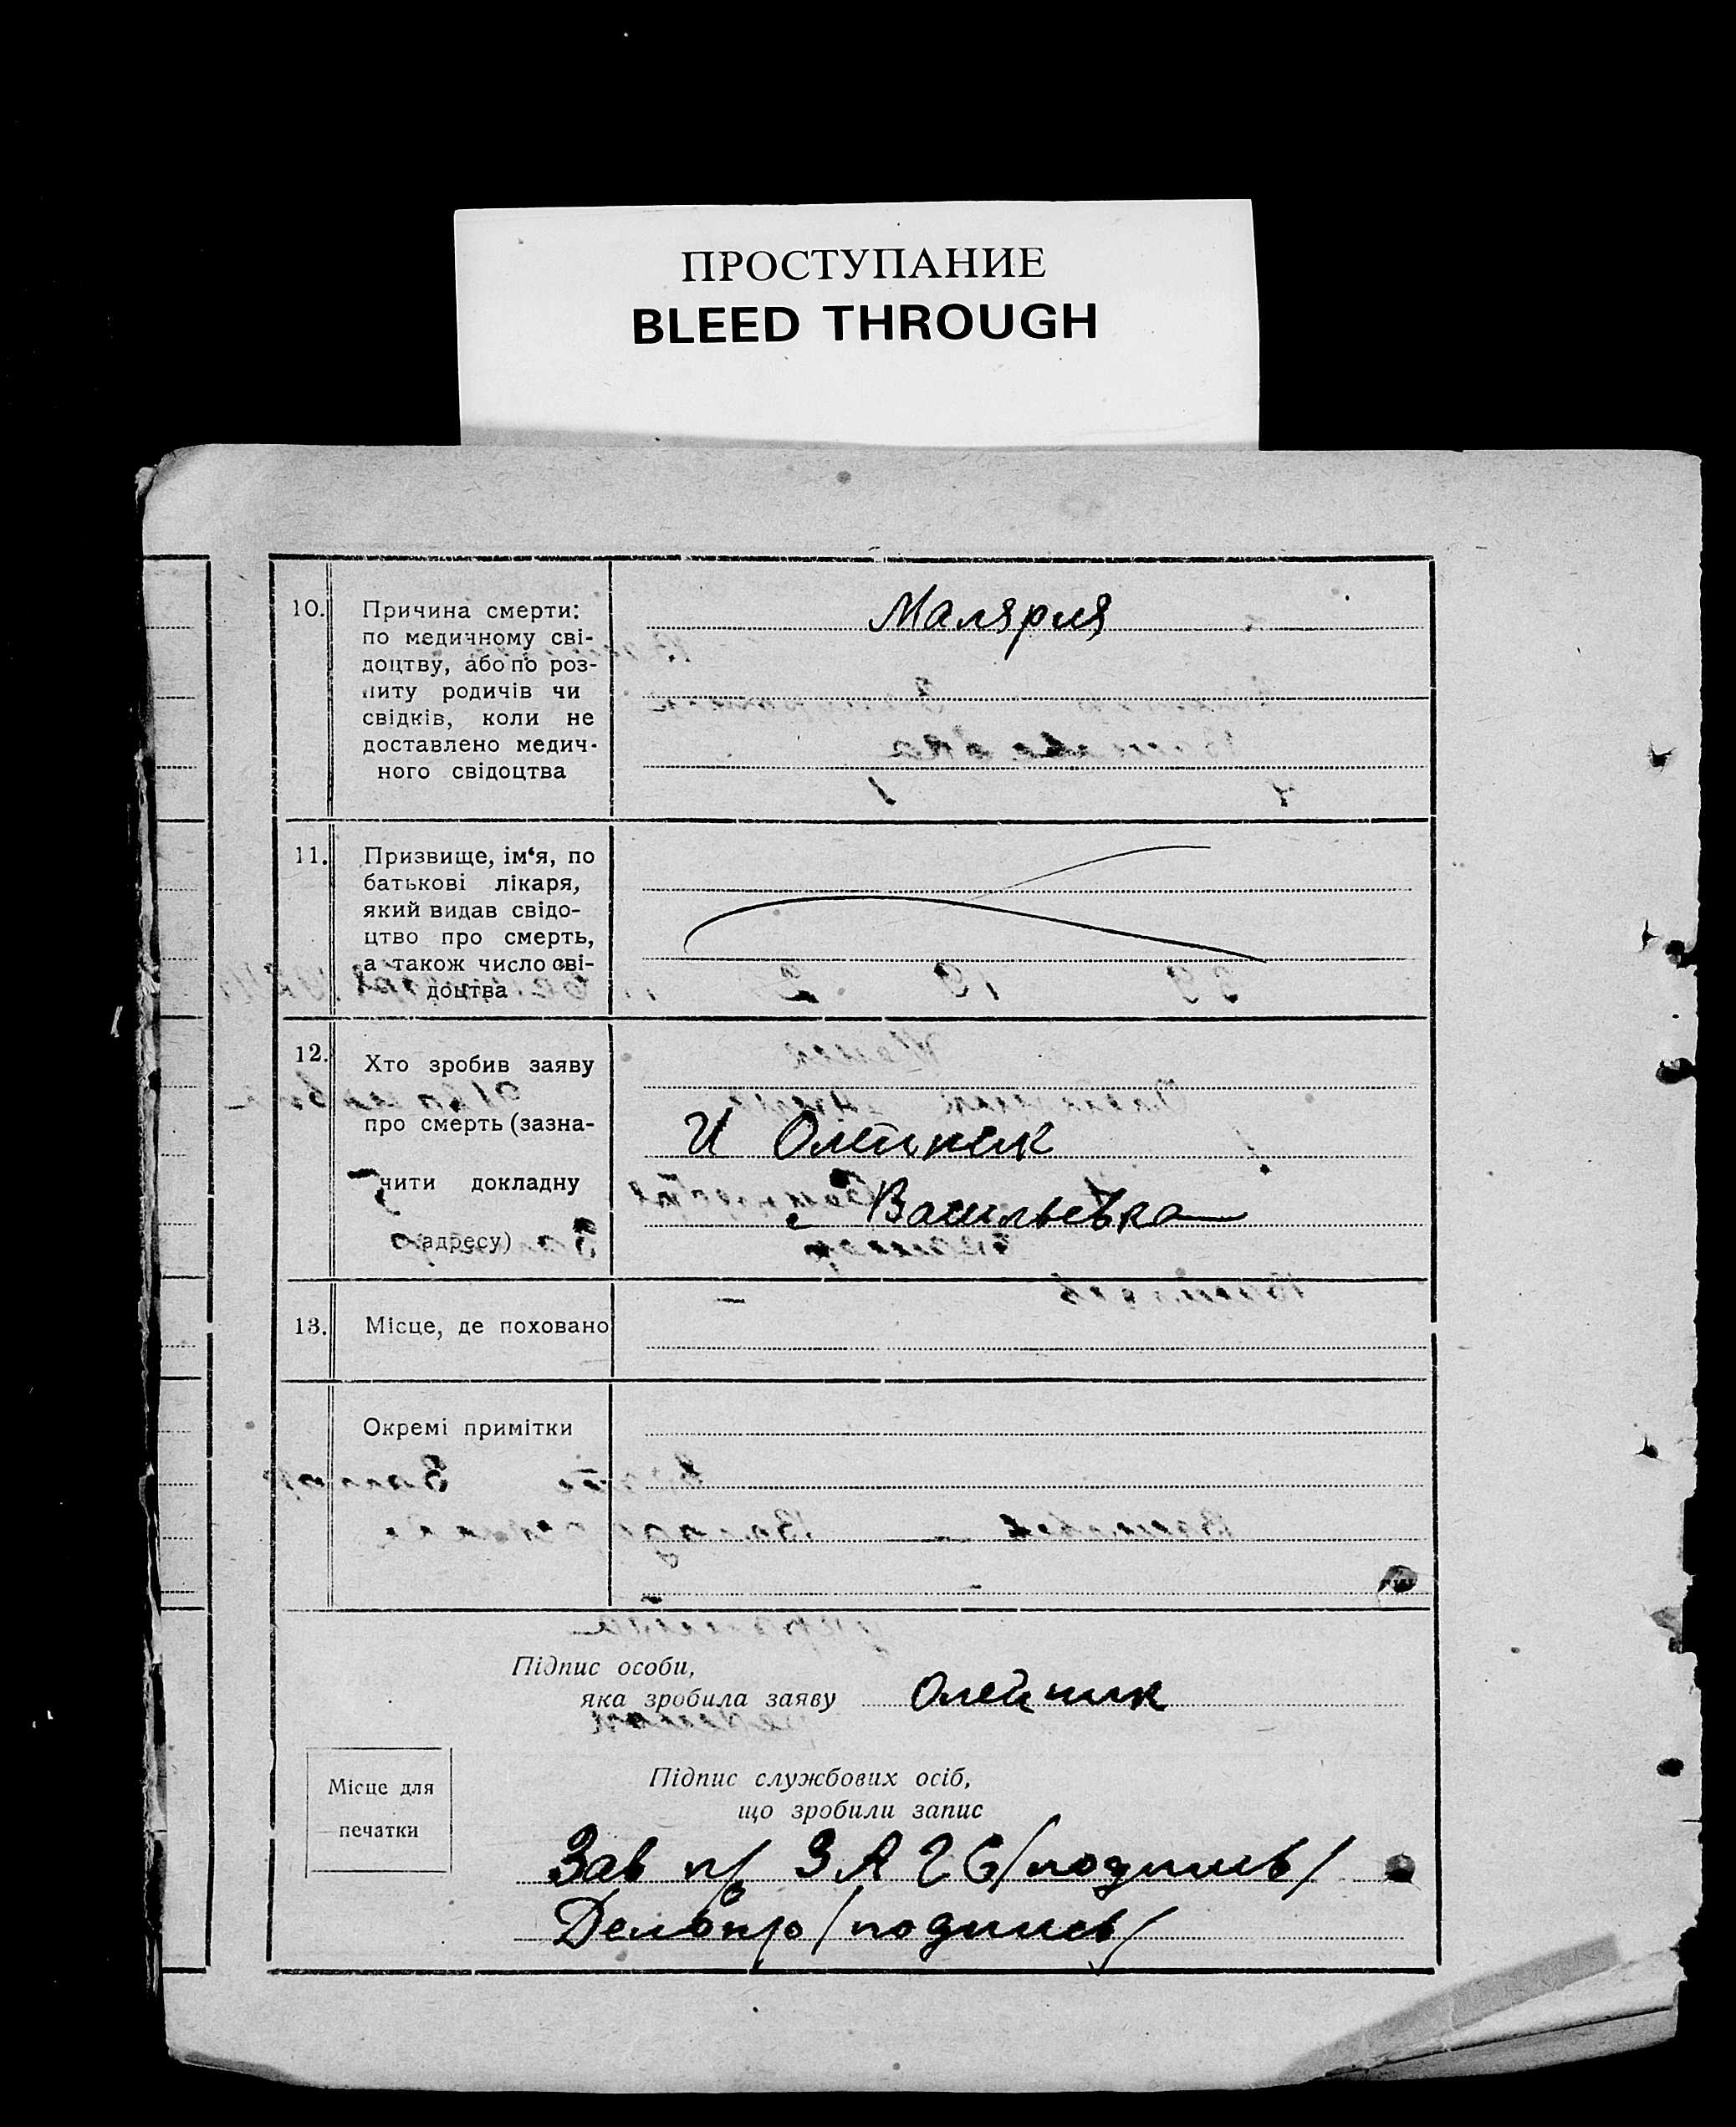 ПРОСТУПАНИЕ
BLEED THROUGH
10. Причина смерти:
по медичному сві-
доцтву, або по роз-
питу родичів чи
свідків, коли не
доставлено медич-
ного свідоцтва
Малярия
11. Призвище, ім‘я, по
батькові лікаря,
який видав свідо-
цтво про смерть,
а також число сві-
доцтва
12. Хто зробив заяву
про смерть (зазна-
чити докладну
адресу)
И Олейник
с Васильевка
13. Місце, де поховано
Окремі примітки
Підпис особи,
яка зробила заяву Олейник
Місце для
печатки
Підпис службових осіб,
що зробили запис
Зав п/ ЗАГС /подпись/
Делопр /подпись/